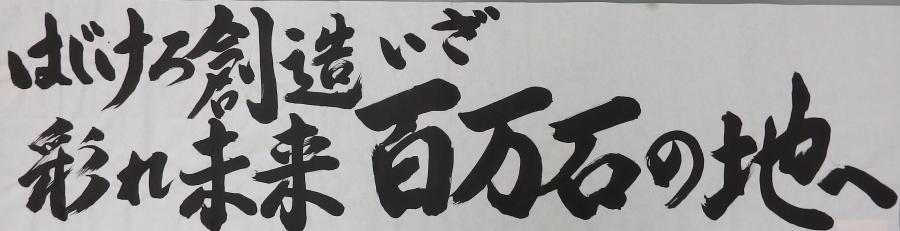 はじけろ創造 いざ
彩れ未来 百万石の地へ